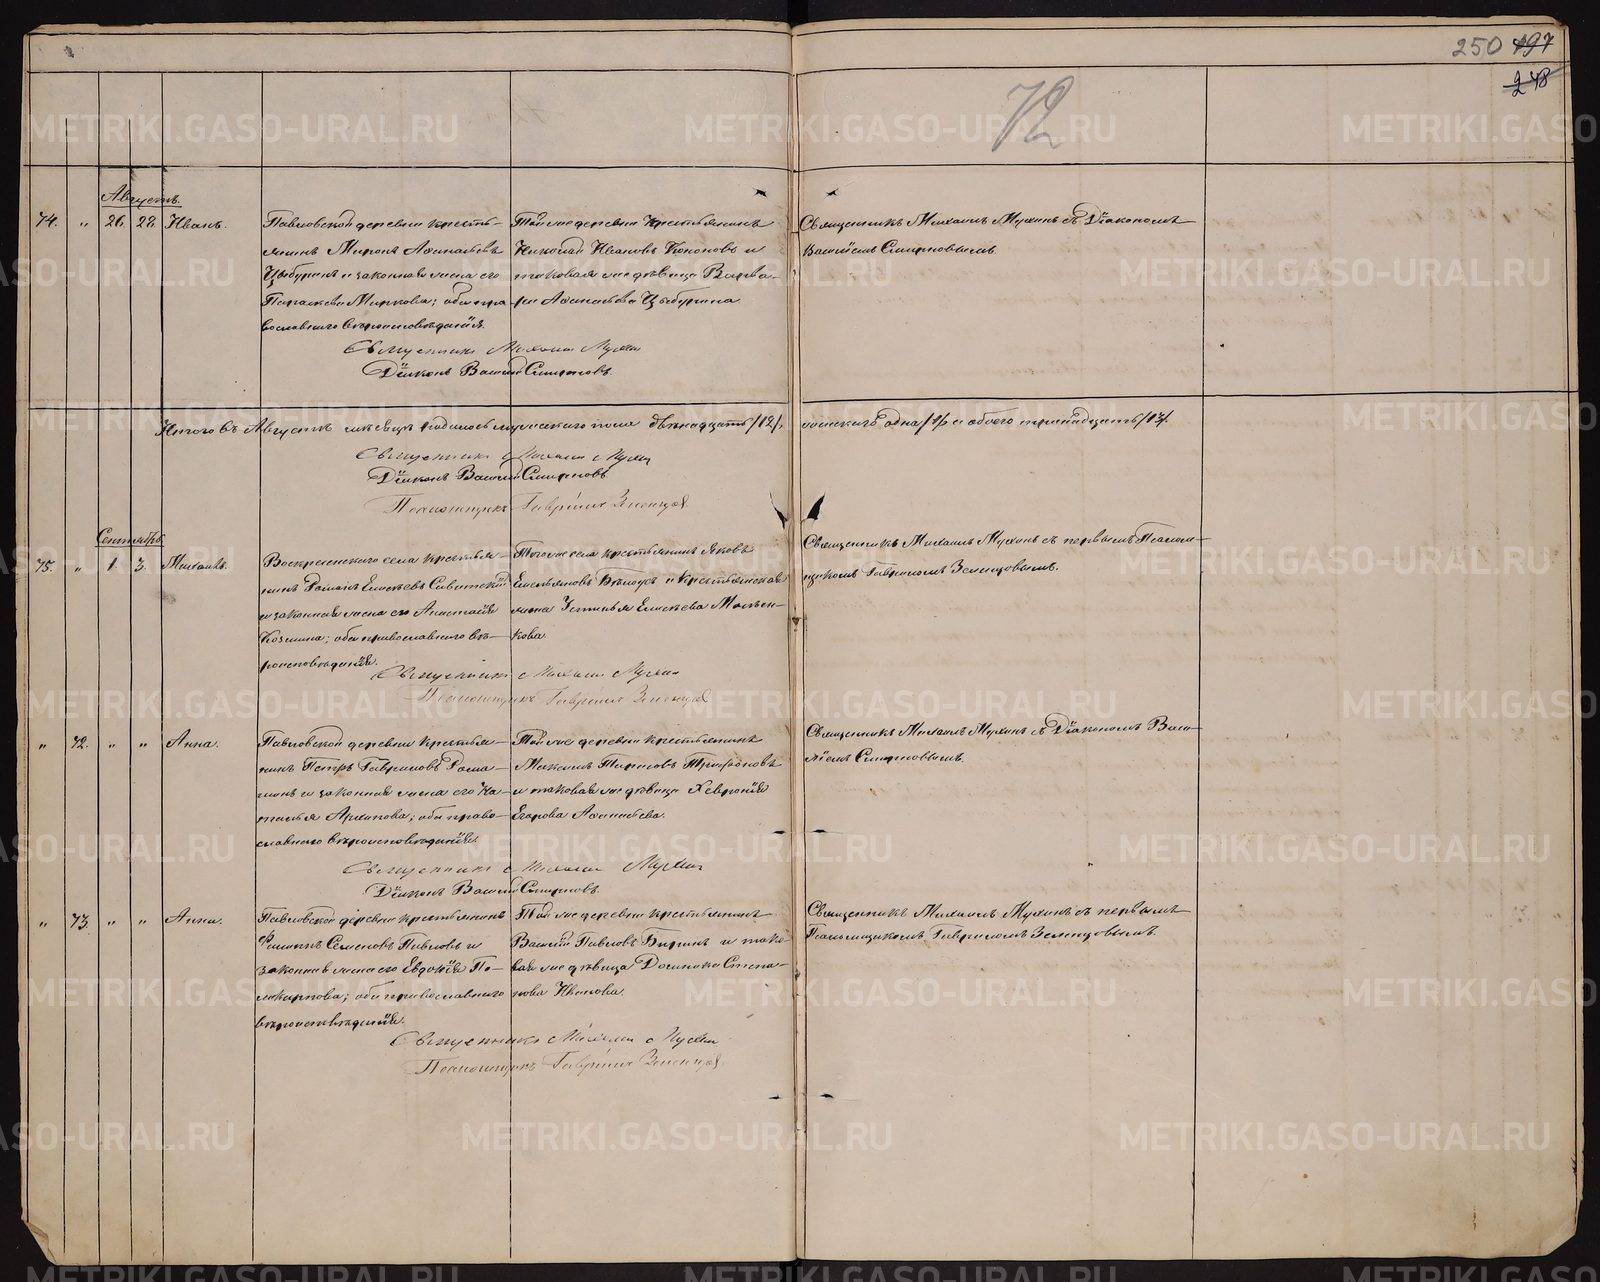 250 197
248
72
Августъ.
74. " 26. 28. Иванъ.
Павловской деревни крестья-
нинъ Миронъ Аѳанасьевъ
Цыбуринъ и законная жена его
Параскева Маркова; оба пра-
вославнаго вѣроисповѣданія.
Той же деревни Крестьянинъ
Николай Ивановъ Кононовъ и
таковая же дѣвица Варва-
ра Аѳанасьева Цыбурина
Священникъ Михаилъ Мухинъ съ Діакономъ
Василіемъ Смирновымъ.
Священникъ Михаилъ Мухин
Діаконъ Василій Смирновъ.
Итого въ Августѣ мѣсяцѣ родилось мужескаго пола двѣнадцать /12/,
женскаго одна /1/ и обоего тринадцать /13/.
Священникъ Михаилъ Мухин
Діаконъ Василій Смирновъ
Псаломщикъ Гавріилъ Зеленцов
Сентябрь
75. " 1 3. Михаилъ.
Воскресенскаго села крестья-
нинъ Романъ Елисѣевъ Савитскій
и законная жена его Анастасія
Козмина; оба православнаго вѣ-
роисповѣданія.
Тогоже села крестьянинъ Яковъ
Емельяновъ Бѣлоусъ и крестьянская
жена Устинья Елисѣева
кова
Священникъ Михаилъ Мухинъ съ первымъ Псалом-
щикомъ Гавріиломъ Зеленцовымъ.
Священникъ Михаилъ Мухин
Псаломщикъ Гавріилъ Зеленцов
" 72. " " Анна.
Павловской деревни Крестья-
нинъ Петръ Гавриловъ Рома-
нинъ и законная жена его На-
талья Архипова; оба право-
славнаго вѣроисповѣданія.
Той же деревни крестьянинъ
Максимъ Тарасовъ Трифоновъ
и таковая же дѣвица Хевронія
Егорова Аѳанасьева.
Священникъ Михаилъ Мухинъ съ Діакономъ Васи-
ліемъ Смирновымъ.
Священникъ Михаилъ Мухин
Діаконъ Василій Смирновъ.
" 73. " " Анна.
Павловской деревни крестьянинъ
Филиппъ Семеновъ Павловъ и
законная жена его Евдокія По-
ликарпова; оба православнаго
вѣроисповѣданія.
Той же деревни крестьянинъ
Василій Павловъ Биринъ и тако-
вая же дѣвица Домника Степа-
нова Иванова.
Священникъ Михаилъ Мухинъ съ первымъ
Псаломщикомъ Гавріиломъ Зеленцовымъ.
Священникъ Михаилъ Мухин
Псаломщикъ Гавріилъ Зеленцов
METRIKI.GASO-URAL.RU